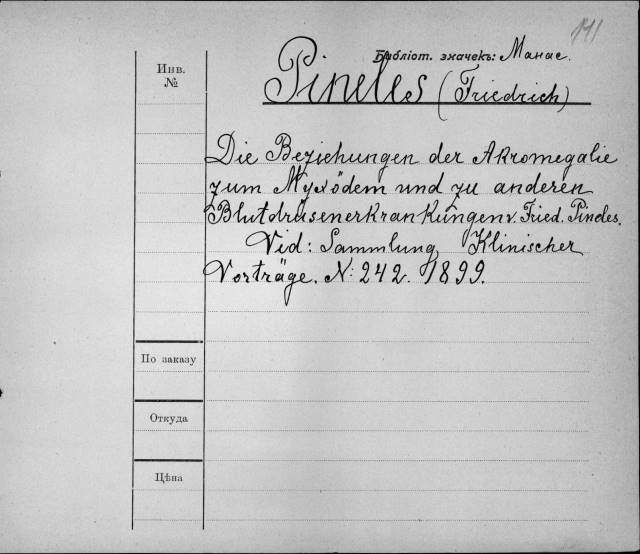 141
Библіот. значекъ: Манас.
Инв.
№
Pineles (Friedrich)
Die Beziehungen der Akromegalie
zum Myxödem und zu anderen
Blutdrüsenerkrankungen v. Fried. Pineles.
Vid: Sammlung Klinischer
Vorträge. N: 242. 1899.
По заказу
Откуда
Цѣна